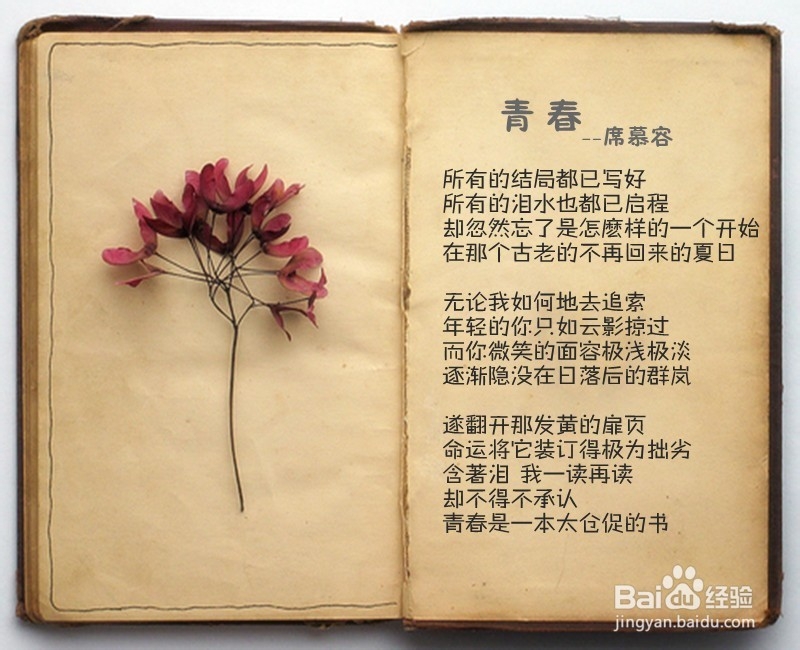 青春
--席慕容
所有的结局都已写好
所有的泪水也都已启程
却忽然忘了是怎麽样的一个开始
在那个古老的不再回来的夏日
无论我如何地去追索
年轻的你只如云影掠过
而你微笑的面容极浅极淡
逐渐隐没在日落后的群岚
遂翻开那发黄的扉页
命运将它装订得极为拙劣
含著泪 我一读再读
却不得不承认
青春是一本太仓促的书
Bai du 经验
jingyan.baidu.com